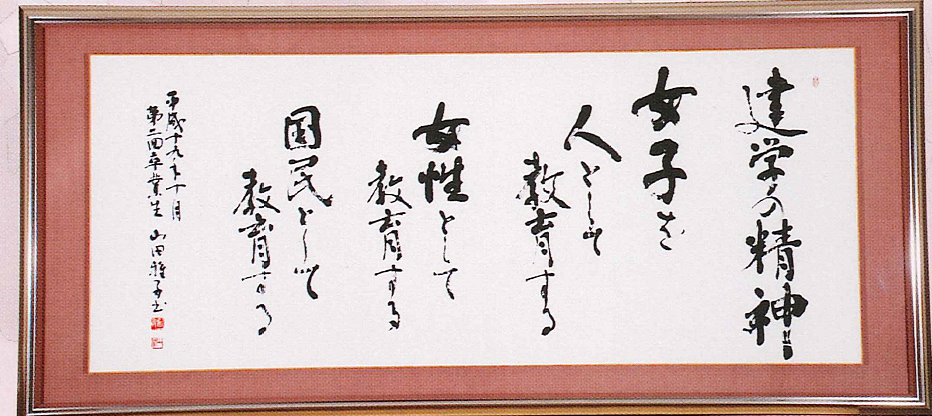 建学の精神
女子を
人として
教育する
女性として
教育する
国民として
教育する
平成十九年十月
第二回卒業生 山田雅子書